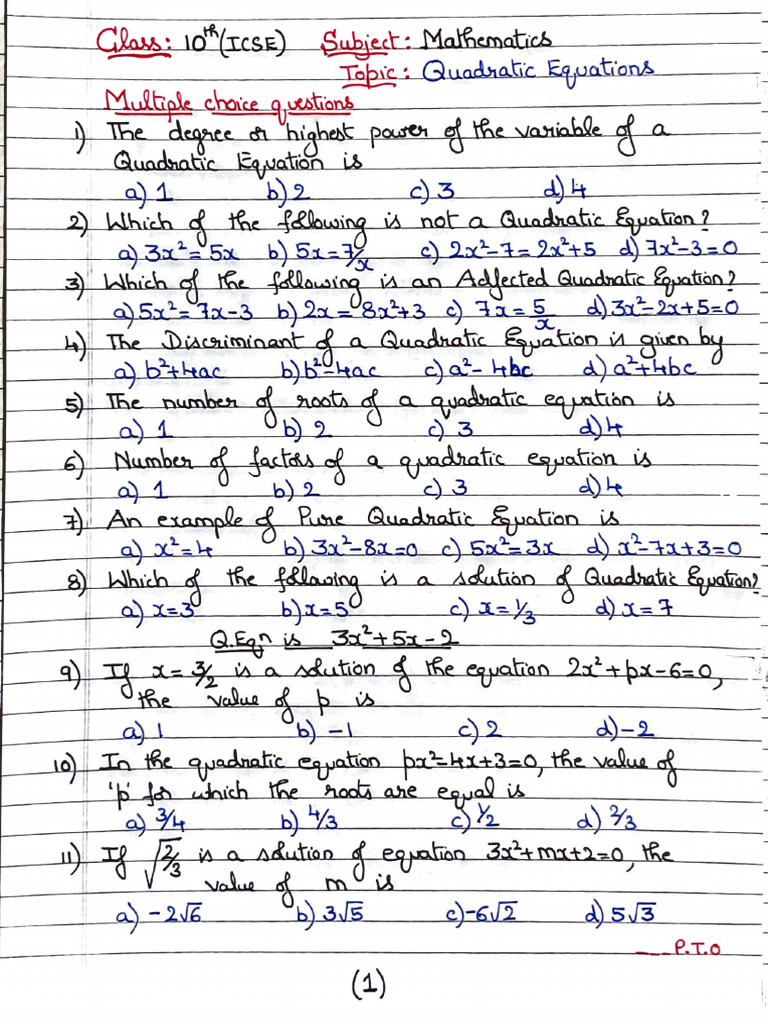 Class: 10th (ICSE) Subject: Mathematics
Topic: Quadratic Equations
Multiple choice questions
1) The degree or highest power of the variable of a
Quadratic Equation is
a) 1 b) 2 c) 3 d) 4
2) Which of the following is not a Quadratic Equation?
a) 3x² = 5x b) 5x = 7/x c) 2x²-7 = 2x²+5 d) 7x²-3=0
3) Which of the following is an Adfected Quadratic Equation?
a) 5x² = 7x-3 b) 2x = 8x²+3 c) 7x = 5/x d) 3x²-2x+5=0
4) The Discriminant of a Quadratic Equation is given by
a) b²+4ac b) b²-4ac c) a²-4bc d) a²+4bc
5) The number of roots of a quadratic equation is
a) 1 b) 2 c) 3 d) 4
6) Number of factors of a quadratic equation is
a) 1 b) 2 c) 3 d) 4
7) An example of Pure Quadratic Equation is
a) x²=4 b) 3x²-8x=0 c) 5x²=3x d) x²-7x+3=0
8) Which of the following is a solution of Quadratic Equation?
a) x=3 b) x=5 c) x=1/3 d) x=7
Q.Eqn is 3x²+5x-2
9) If x=3/2 is a solution of the equation 2x²+px-6=0,
the value of p is
a) 1 b) -1 c) 2 d) -2
10) In the quadratic equation px²-4x+3=0, the value of
'p' for which the roots are equal is
a) 3/4 b) 4/3 c) 1/2 d) 2/3
11) If √2/3 is a solution of equation 3x²+mx+2=0, the
value of m is
a) -2√6 b) 3√5 c) -6√2 d) 5√3
P.T.O
(1)